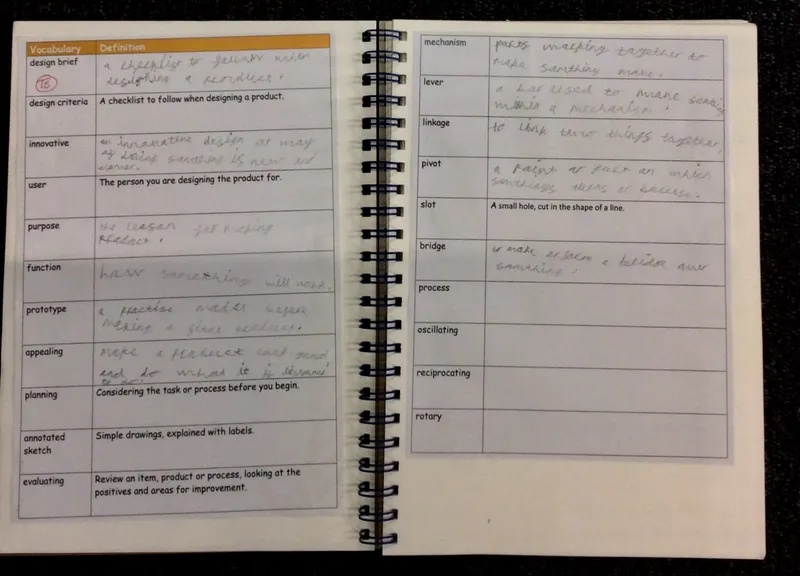 Vocabulary Definition
design brief a checklist to follow when
designing a product.
TS
design criteria A checklist to follow when designing a product.
innovative an innovative design or way
of doing something is new and
user The person you are designing the product for.
purpose the reason for making
product.
function how something will work.
prototype a practise model before
making a final product.
appealing make a product and
and do what it is designed
to do.
planning Considering the task or process before you begin.
annotated Simple drawings, explained with labels.
sketch
evaluating Review an item, product or process, looking at the
positives and areas for improvement.
mechanism parts working together to
make somthing move.
lever a bar used to make
within a mechanism.
linkage to link two things together.
pivot a point or part on which
somthings or balance.
slot A small hole, cut in the shape of a line.
bridge to make or form a bridge over
somthing.
process
oscillating
reciprocating
rotary